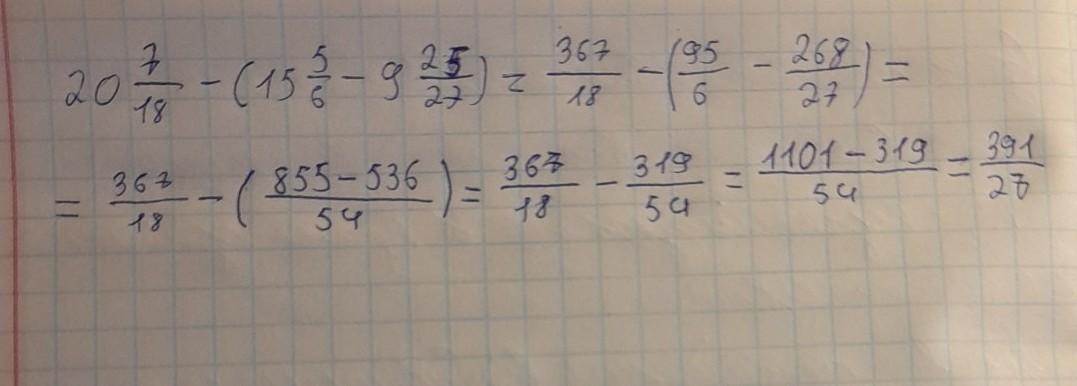 20 7/18 - (15 5/6 - 9 25/27) = 367/18 - (95/6 - 268/27) =
= 367/18 - (855 - 536 / 54) = 367/18 - 319/54 = 1101 - 319 / 54 = 391/27